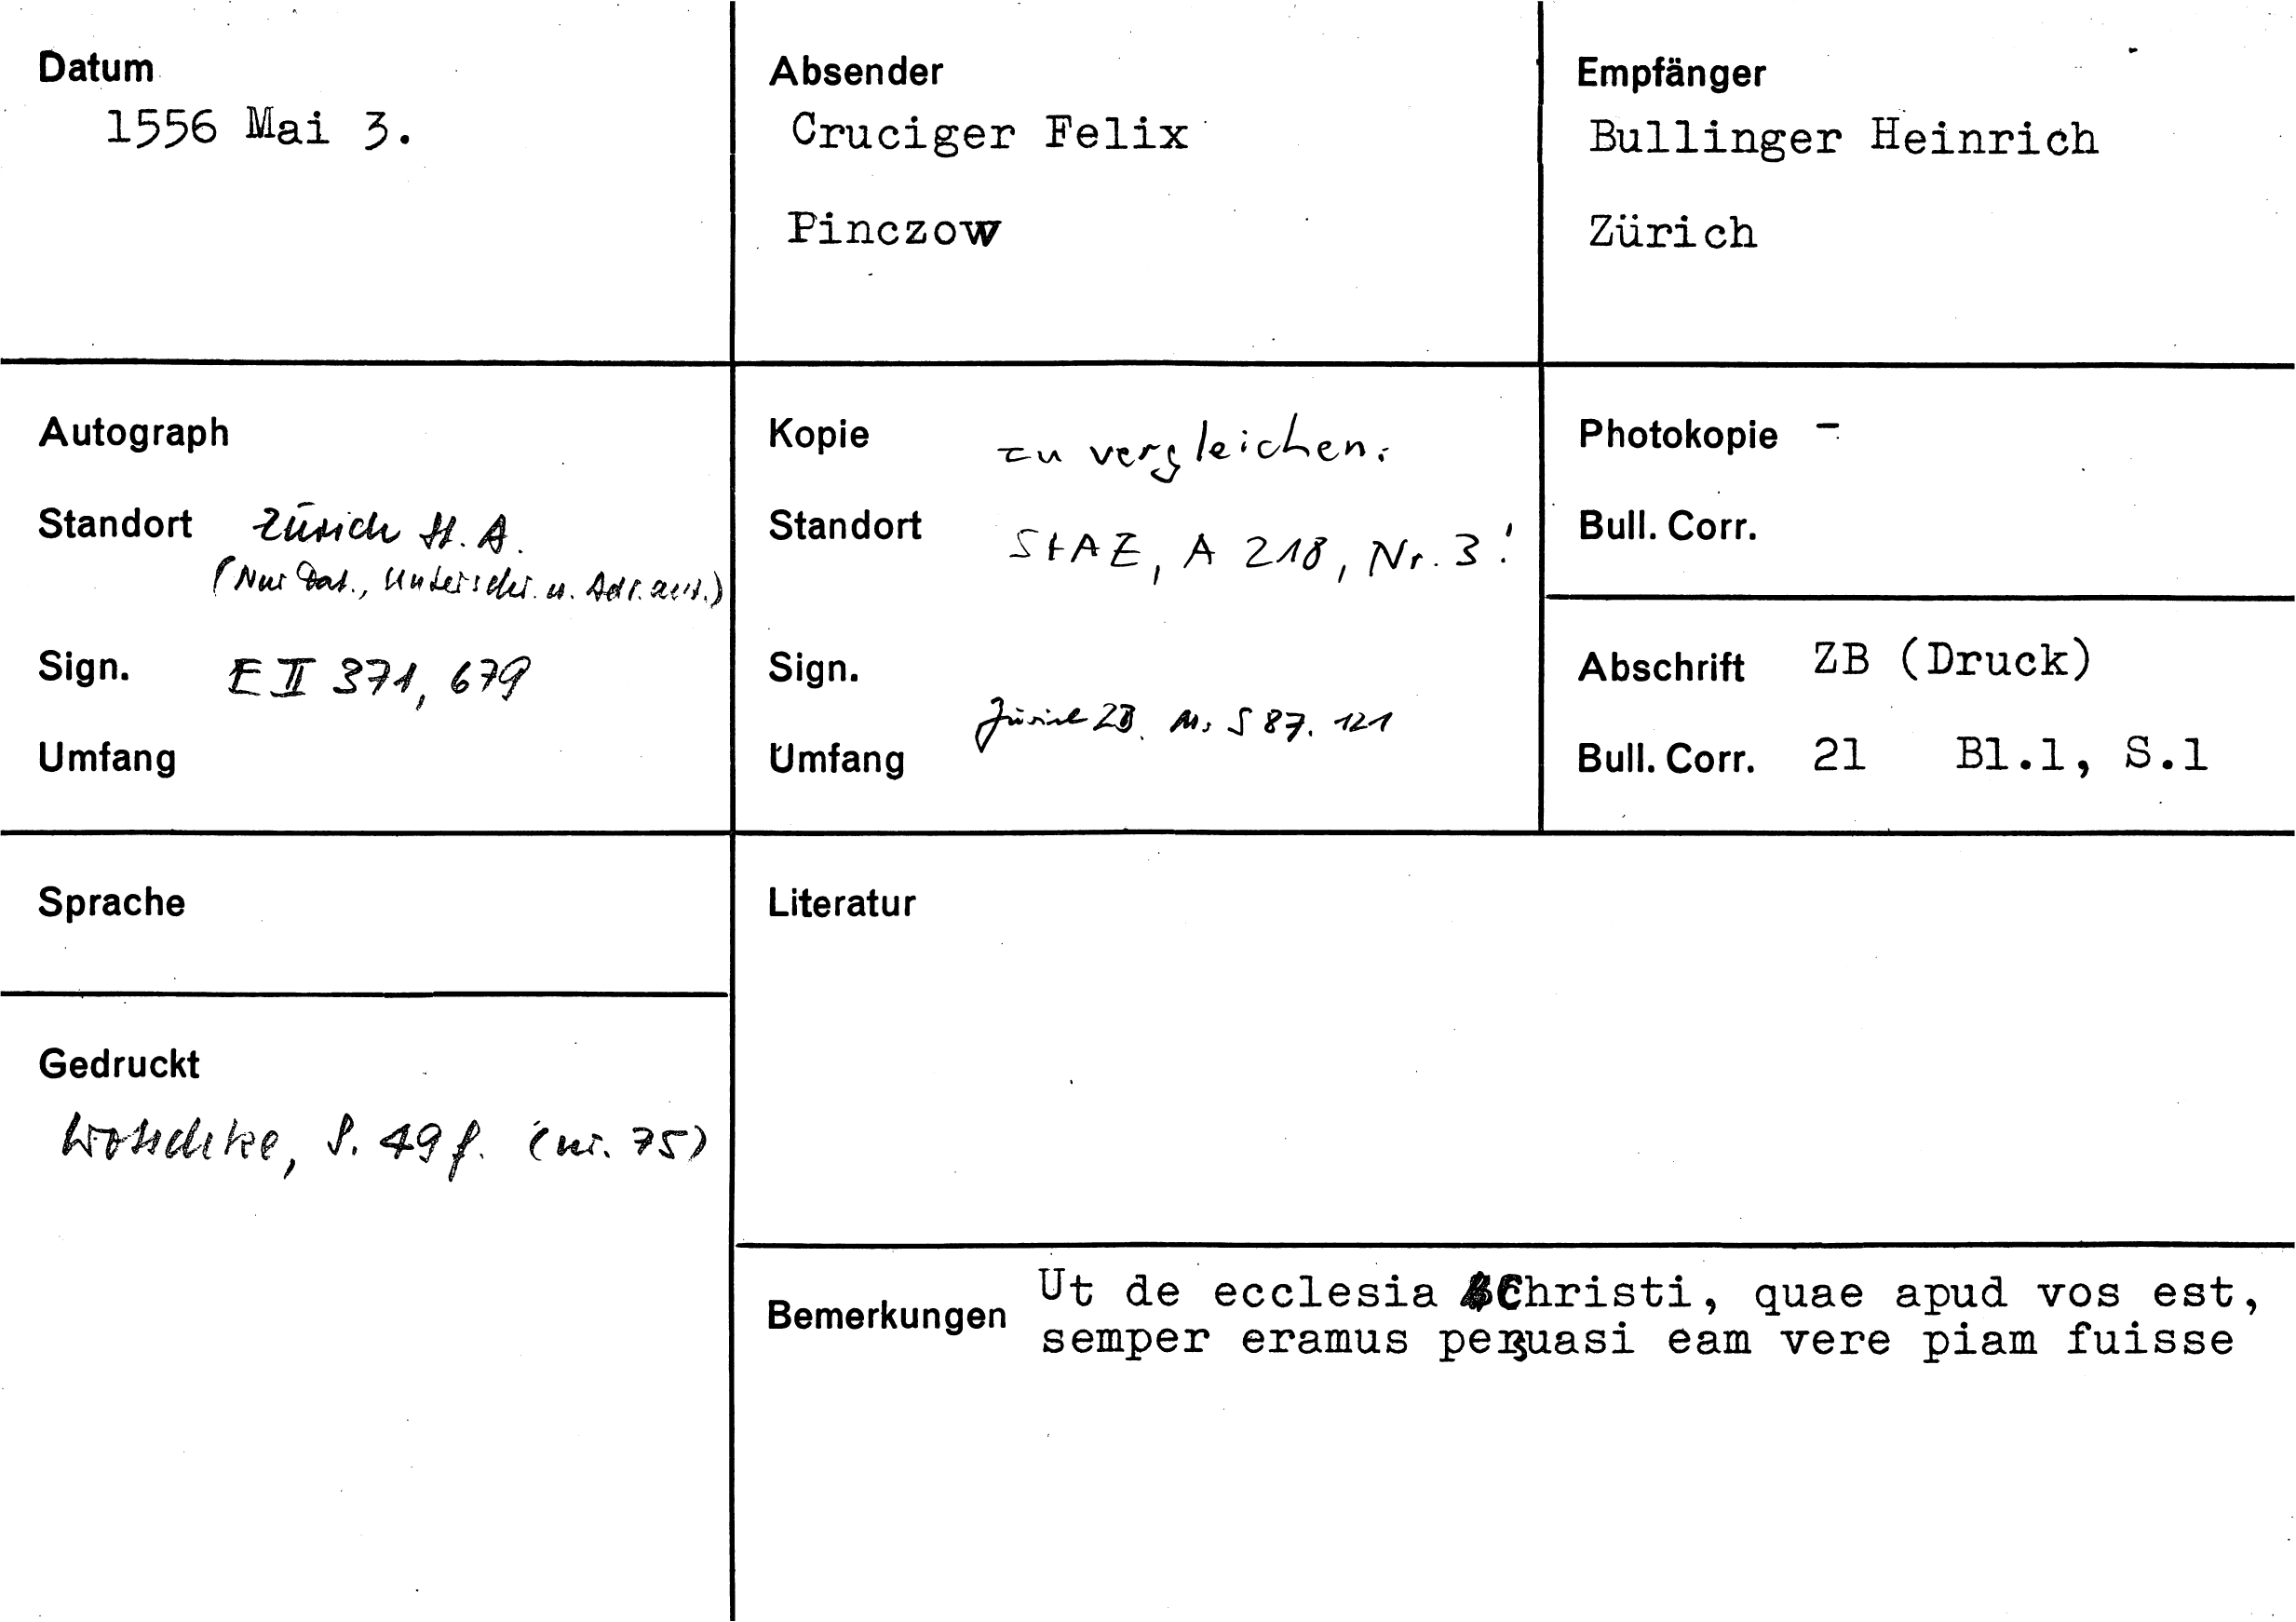 Datum
1556 Mai 3.
Absender
Cruciger Felix
Pinczow
Empfänger
Bullinger Heinrich
Zürich
Autograph
Standort Zürich St. A.
(Nur Dat., Unterschr. u. Adr. aut.)
Sign. E II 371, 679
Umfang
Kopie zu vergleichen:
Standort StAE, A 218, Nr. 3!
Sign.
Zürich ZB. Ms S 87. 121
Umfang
Photokopie -
Bull. Corr.
Abschrift ZB (Druck)
Bull. Corr. 21 Bl.1, S.1
Sprache
Literatur
Gedruckt
Wotschke, S. 49 f. (nr. 75)
Bemerkungen
Ut de ecclesia Christi, quae apud vos est,
semper eramus persuasi eam vere piam fuisse